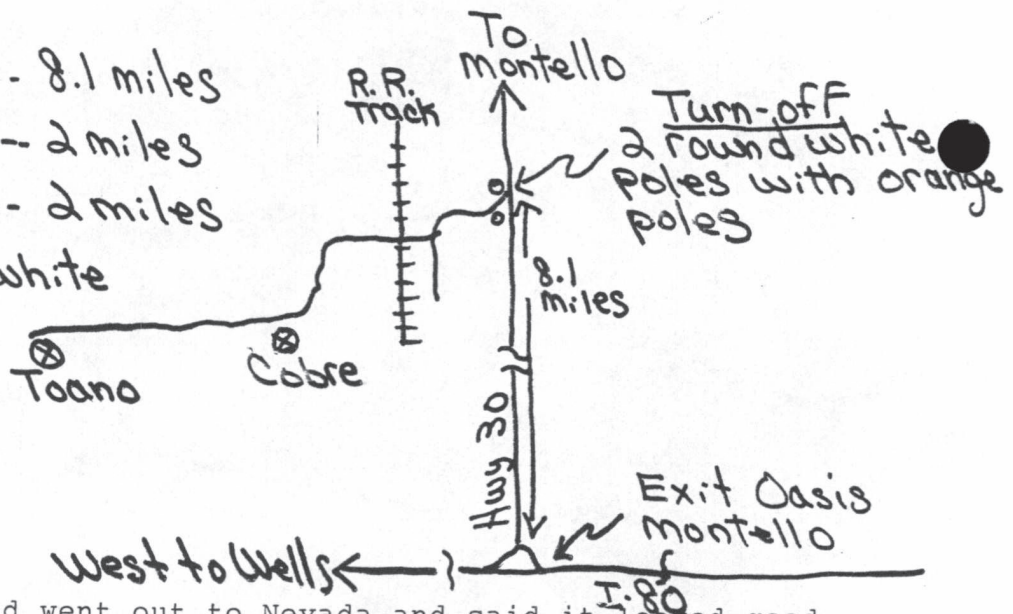 - 8.1 miles
-- 2 miles
- 2 miles
white
To
montello
R.R.
Track
Turn-off
2 round white
poles with orange
poles
8.1
miles
Toano
Cobre
Hwy 30
Exit Oasis
montello
West to Wells
I-80
d went out to Nevada and said it looked good